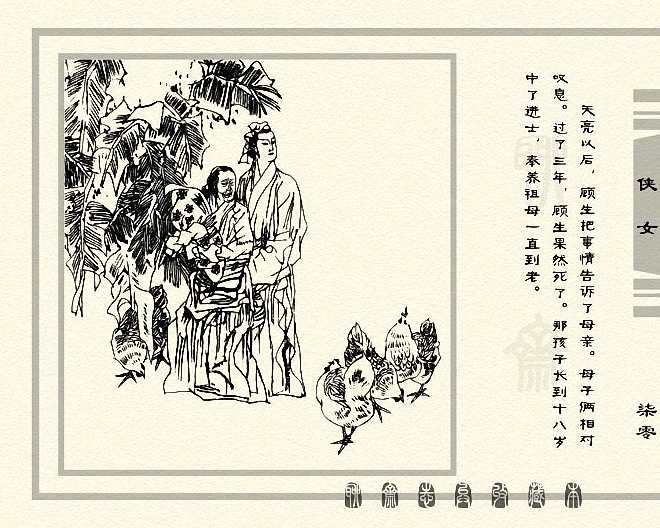 侠女
柒零
天亮以后，顾生把事情告诉了母亲。母子俩相对
叹息。过了三年，顾生果然死了。那孩子长到十八岁
中了进士，奉养祖母一直到老。
聊斋志异收藏本